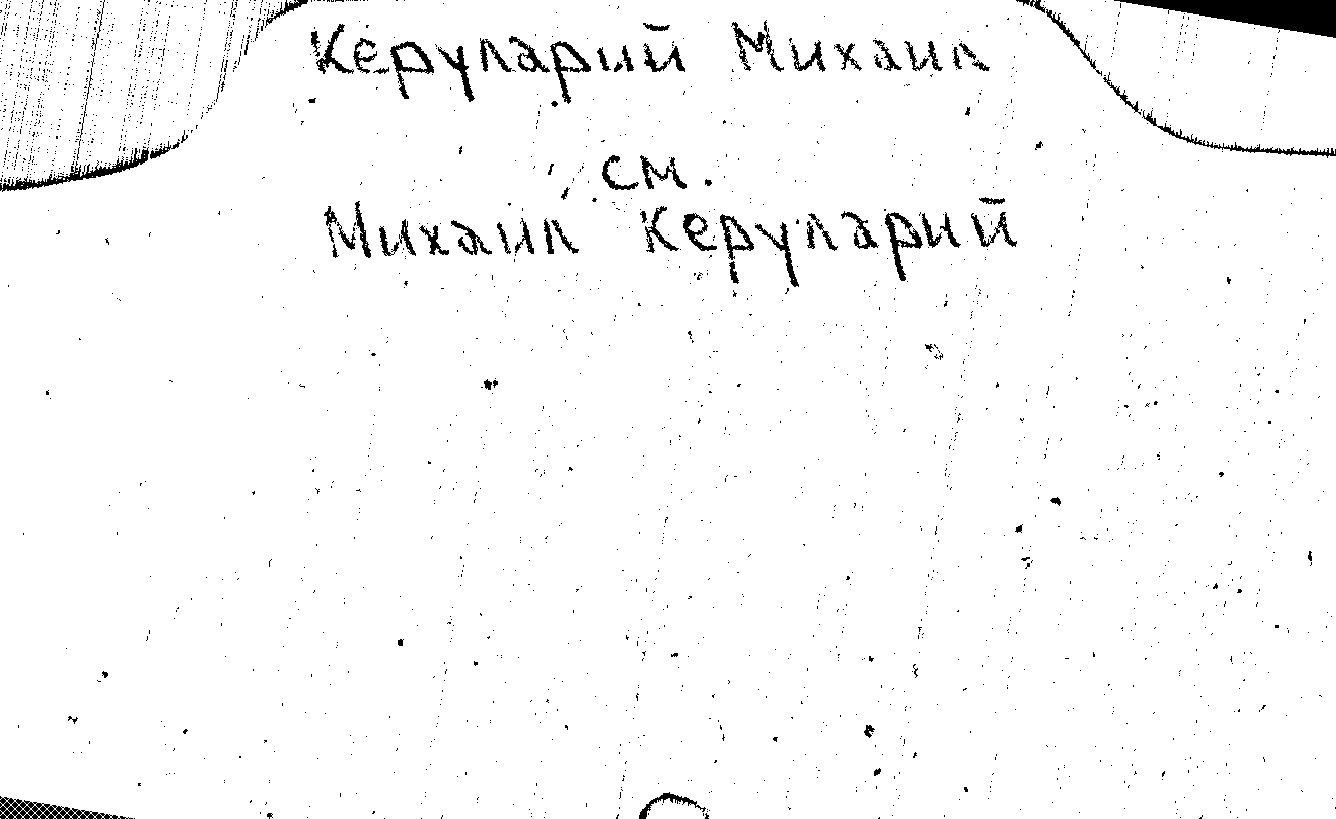 Керуларий Михаил
см.
Михаил Керуларий